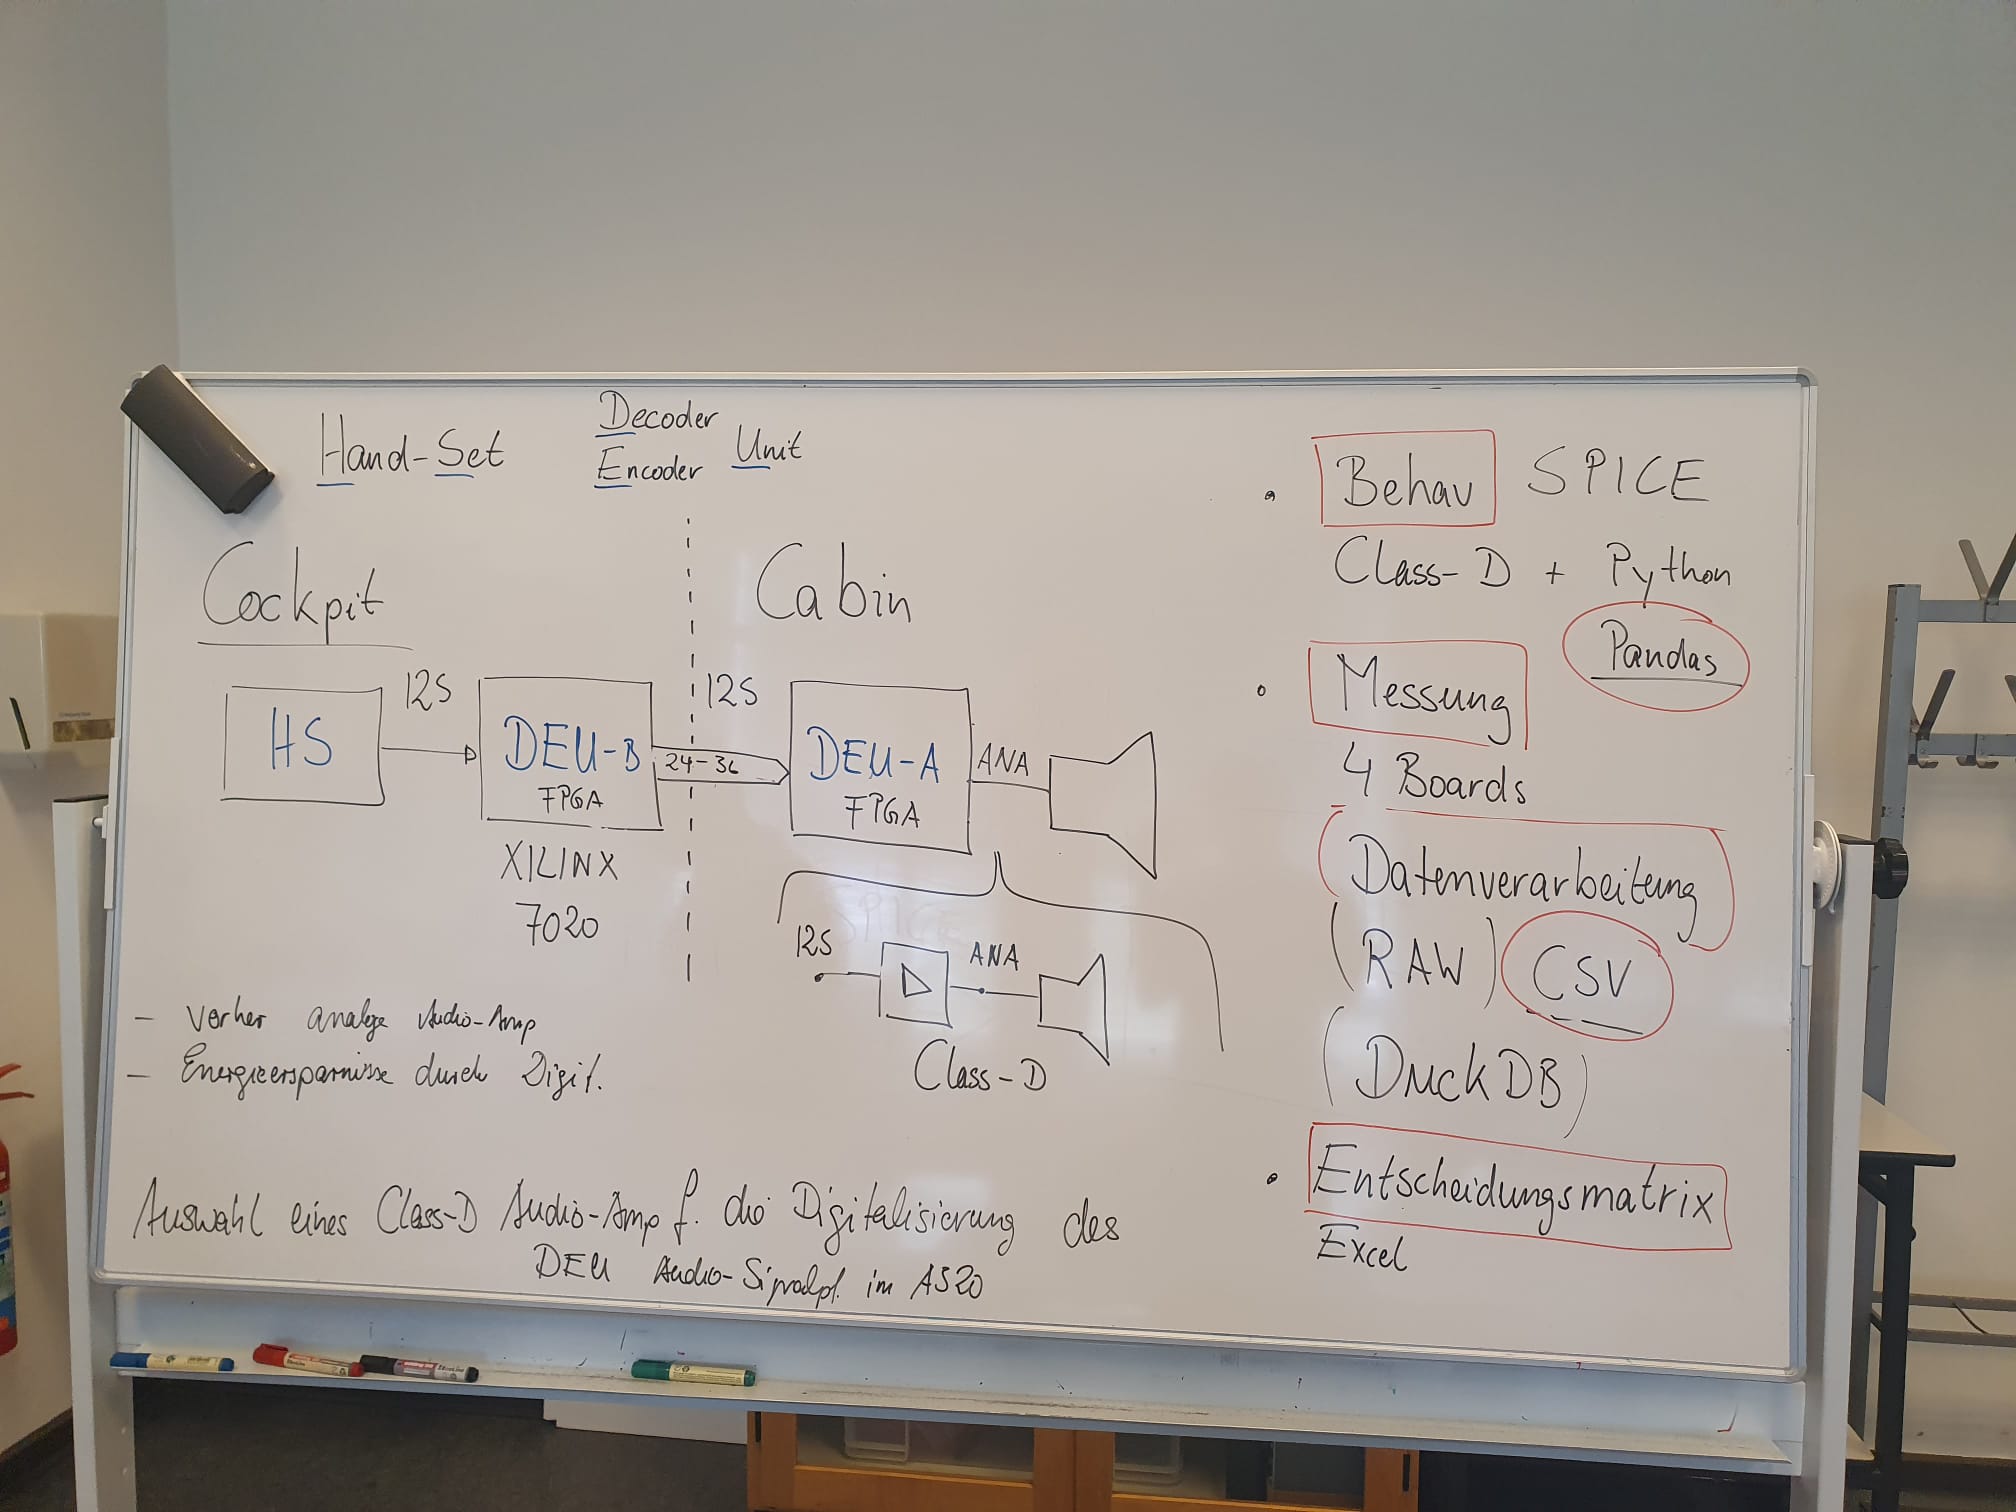 Hand-Set
Decoder
Encoder
Unit
Cockpit
Cabin
HS
I2S
DEU-B
FPGA
XILINX
7020
I2S
24-36
DEU-A
FPGA
ANA
I2S
ANA
Class-D
- vorher analoge Audio-Amp
- Energieersparnisse durch Digit.
Auswahl eines Class-D Audio-Amp f. die Digitalisierung des
DEU Audio-Signalpf. im A320
• Behav SPICE
Class-D + Python
Pandas
• Messung
4 Boards
(Datenverarbeitung)
(RAW) CSV
(DuckDB)
• Entscheidungsmatrix
Excel